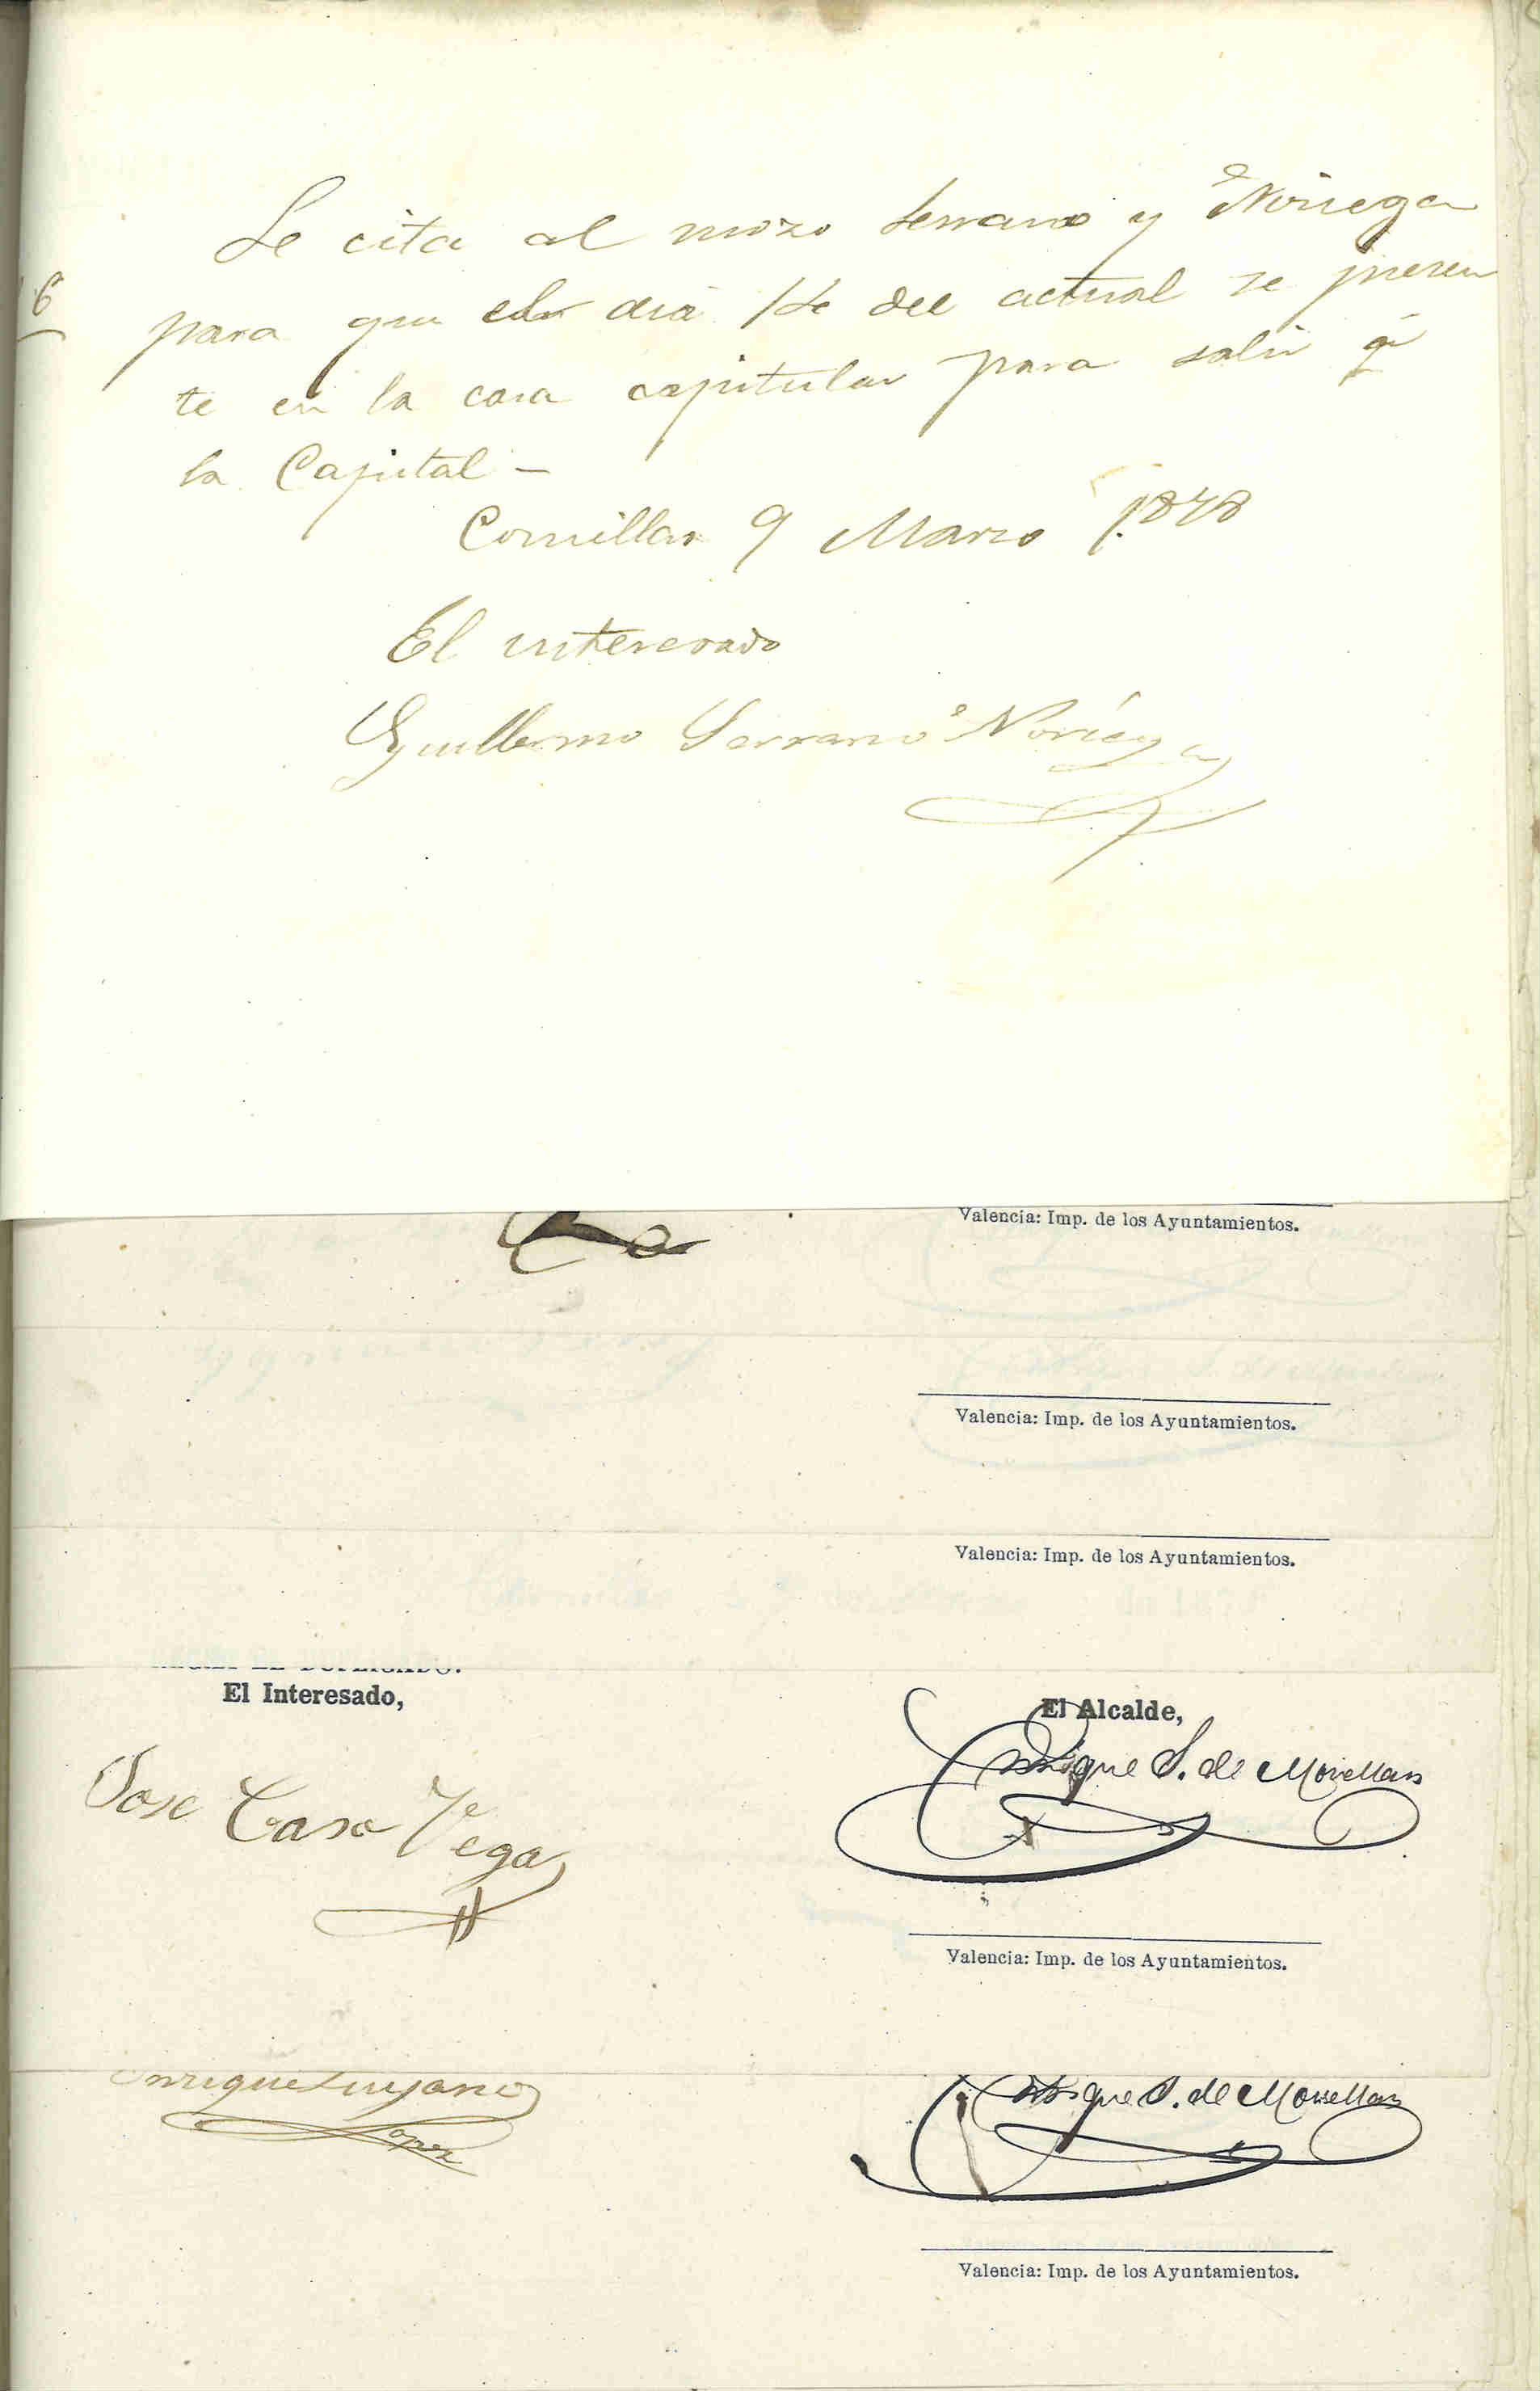 6
Se cita al mozo Serrano y Noriega
para que el dia del actual se presen
te en la casa capitular para salir á
la Capital —
Comillas 9 Marzo 1878
El interesado
Guillermo Serrano Noriega
Valencia: Imp. de los Ayuntamientos.
Valencia: Imp. de los Ayuntamientos.
Valencia: Imp. de los Ayuntamientos.
El Interesado,
El Alcalde,
Jose Caso Vega
Enrique S. de Movellan
Valencia: Imp. de los Ayuntamientos.
Enrique Luyano
Lopez
Enrique S. de Movellan
Valencia: Imp. de los Ayuntamientos.